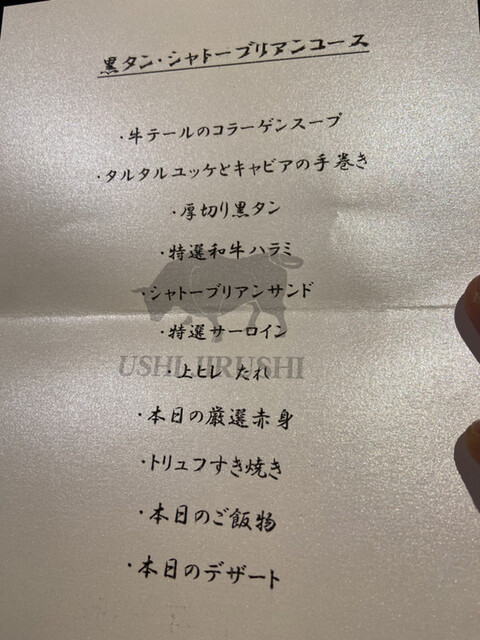 黒タン・シャトーブリアンコース
・牛テールのコラーゲンスープ
・タルタルユッケとキャビアの手巻き
・厚切り黒タン
・特選和牛ハラミ
・シャトーブリアンサンド
・特選サーロイン
USHI JIRUSHI
・上ヒレ たれ
・本日の厳選赤身
・トリュフすき焼き
・本日のご飯物
・本日のデザート